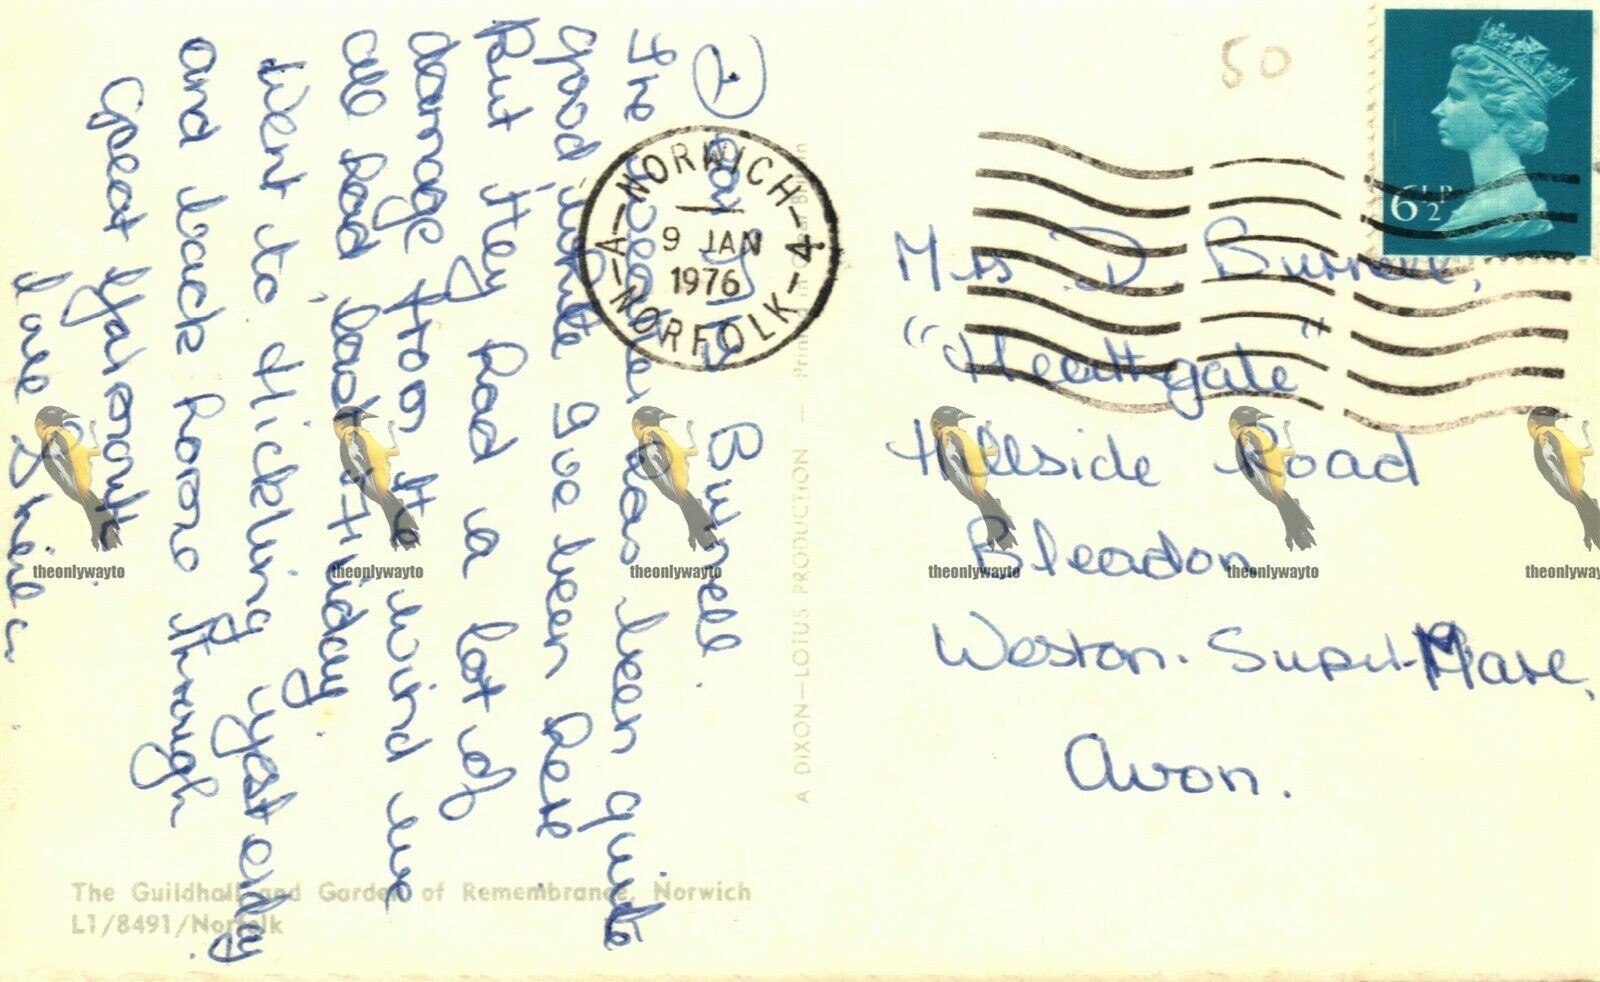 ② Day Mrs Burrell.
The weather has been quite
good while I've been here
But they had a lot of
damage from the wind we
all had last Friday
Went to Hickling yesterday
and back home through
Great Yarmouth.
love Sheila
NORWICH
A 4
9 JAN
1976
NORFOLK
50
6½P
Mrs D Burrell,
"Heathgate"
Hillside Road
Bleadon
Weston-Super-Mare,
Avon.
A DIXON—LOTUS PRODUCTION — Printed in Great Britain
The Guildhall and Garden of Remembrance, Norwich
L1/8491/Norfolk
theonlywayto
theonlywayto
theonlywayto
theonlywayto
theonlywayto
theonlyway